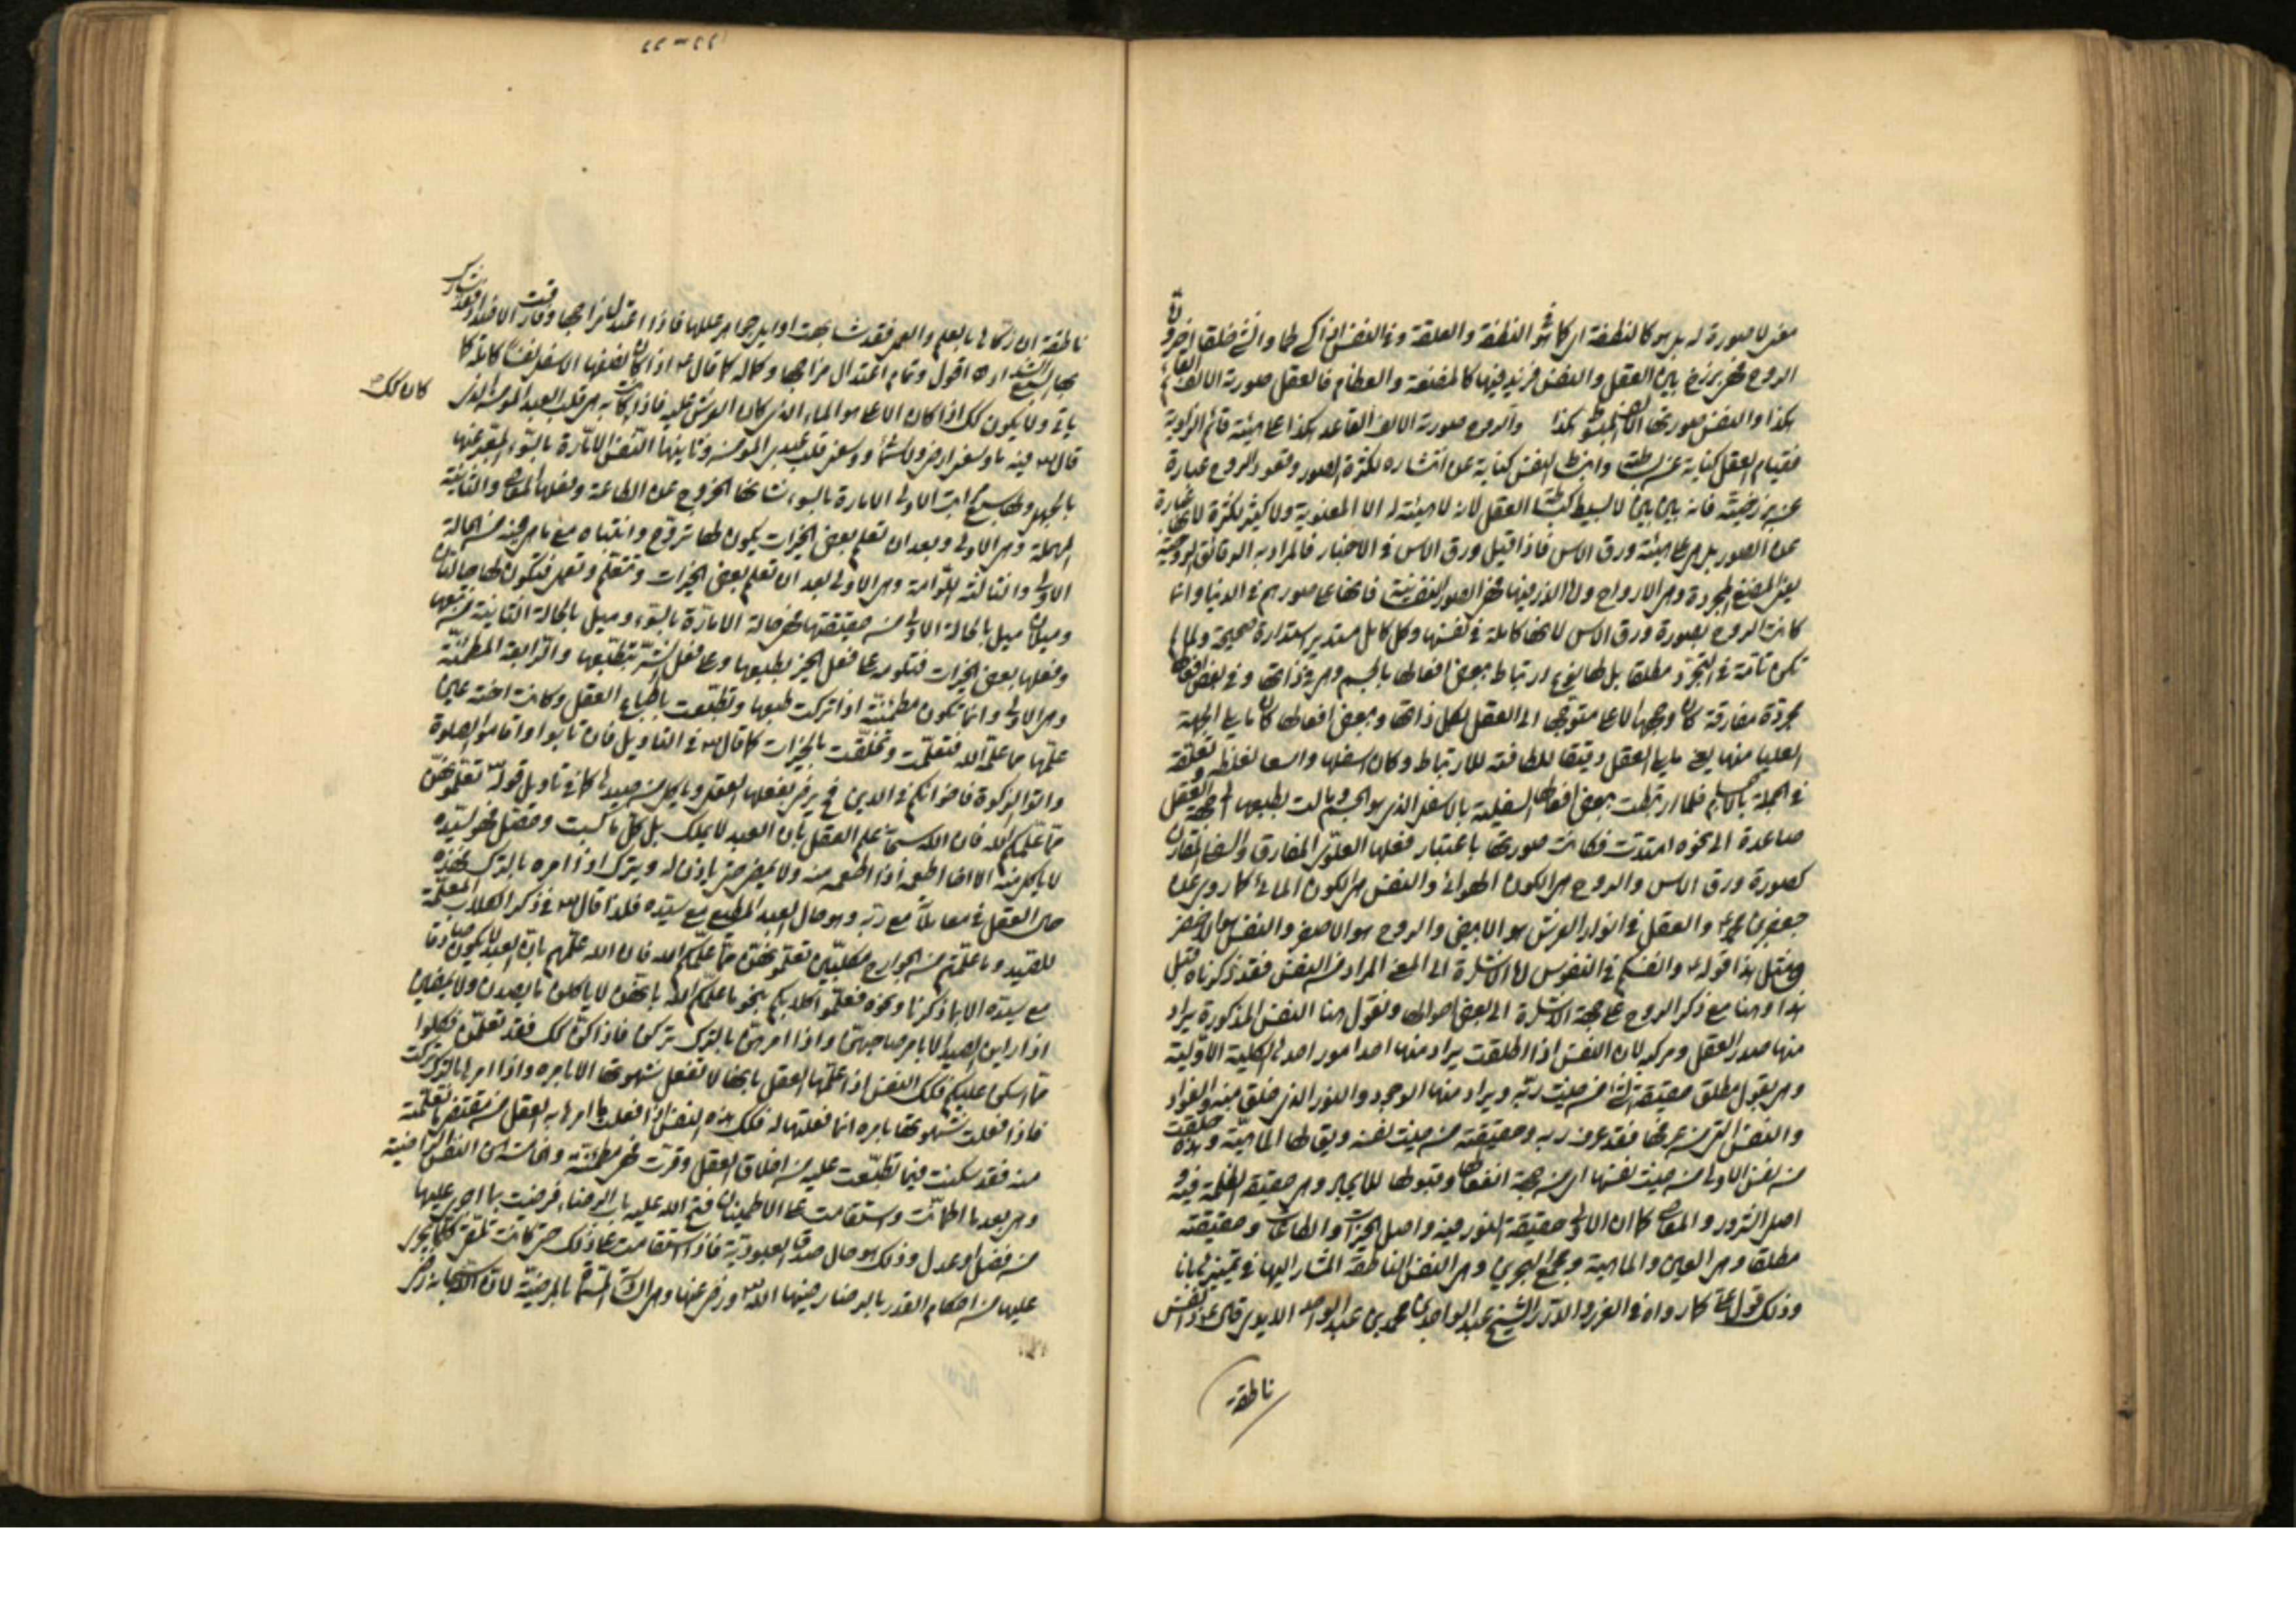 معنى لا صورة له بل هو كالنطفة اى كما هو فى النطفة والعلقة وفى النفس انه كلها وانشئ خلقا اخر وان
الروح فهى برزخ بين العقل والنفس فهى فيها كالمضغة والعظام فالعقل صورته الالف القائم
هكذا والنفس صورتها الالف المبسوط هكذا والروح صورته الالف القاعد هكذا على هيئة قائم الزاوية
فقيام العقل كناية عن بساطته وانبساط النفس كناية عن انتشاره لكثرة الصور وقعود الروح عبارة
عن برزخيته فانه بين بين لا بسيط كبساطة العقل لانه لا هيئة له الا المعنوية ولا كثير لكثرة لانها عبارة
عن الصور بل هى على هيئة ورق الاس فاذا قيل ورق الاس فى الاخبار فالمراد به الرقائق الروحية
يعنى المضغ المجردة وهى الارواح والذر فيها فهى الصور النفسية فانها على صورهم فى الدنيا وانما
كانت الروح بصورة ورق الاس لانها كاملة فى نفسها وكل كامل مستدير استدارة صحيحة ولما لم
تكن تامة فى التجرد مطلقا بل لها نوع ارتباط ببعض افعالها بالجسم وهى فى ذاتها وفى بعض افعالها
مجردة مفارقة كان وجهها الاعلى متوجها الى العقل بكل ذاتها وببعض افعالها كان ما يلى الجهة
العليا منها يعنى ما يلى العقل دقيقا للطافته للارتباط وكان اسفلها واسعا لغلظه وتعلقه
فى الجملة بالاجسام فلما ارتبطت ببعض افعالها السفلية بالاسفل الذى هو الجسم ومالت بطبعها الى جهة العقل
صاعدة الى نحوه امتدت فكانت صورتها باعتبار فعلها العلوى المفارق والسفلى المقارن
كصورة ورق الاس والروح هى الكون الهوائى والنفس هى الكون المائى كما روى عن
جعفر بن محمد ع والعقل فى انوار العرش هو الابيض والروح هو الاصفر والنفس هو الاخضر
وقيل هذا قوله ع وانفسكم فى النفوس لها الاشارة الى المعنى المراد من النفس فقد ذكرناه قبل
هذا وهنا مع ذكر الروح على جهة الاشارة الى بعض احوالها ونقول هنا النفس المذكورة يراد
منها صدر العقل ومركبه لان النفس اذا اطلقت يراد منها احد امور احدها الكلية الاولية
وهى بقول مطلق حقيقة الشئ من حيث ربه ويراد منها الوجود والنور الذى خلق منه والفؤاد
والنفس التى من عرفها فقد عرف ربه وحقيقته من حيث نفسه ويقال لها الماهية وهذه خلقت
من نفس الاولى من حيث نفسها اى من جهة انفعالها وقبولها للايجاد وهى حقيقة الظلمة فيه و
اصل الشرور والمعاصى كما ان الاولى حقيقة النور فيه واصل الخيرات والطاعات وحقيقته
مطلقا وهى العين والماهية ومجمع البحرين وهى النفس الناطقة المشار اليها فى تمييزها بانا
وذلك قول على ع كما رواه فى الغرر والدرر الشيخ عبد الواحد بن محمد بن عبد الواحد الامدى قال ع ذا نفس
ناطقة
ناطقة ان زكاها بالعلم والعمل فقد شابهت اوايل جواهر عللها فاذا اعتدل مزاجها وفارقت الاضداد فقد شارك
بها السبع الشداد اه اقول وتمام اعتدال مزاجها وكماله كما قال ع اذا كان لفعلها الاسفل نفسا كاملة كما
كان كك ص
ياتى ولا يكون كك اذا كان الاعلى هو الماء الذى كان العرش عليه فاذا كانت به هى قلب العبد المؤمن الذى
قال تعالى فيه ما وسعنى ارضى ولا سمائى ووسعنى قلب عبدى المؤمن وثانيها النفس الامارة بالسوء المعبر عنها
بالجهل ولها سبع مراتب الاولى الامارة بالسوء شانها الخروج عن الطاعة وفعلها المعاصى والثانية
الملهمة وهى الاولى وبعد ان تعلم بعض الخيرات يكون لها تروح وانتباه مع ما هى فيه من الحالة
الاولى والثالثة اللوامة وهى الاولى بعد ان تعلم بعض الخيرات وتتعلم وتعمل فتكون لها حالتان
وميلان ميل بالحالة الاولى من حقيقتها فهى حالة الامارة بالسوء وميل بالحالة الثانية من تتبعها
وفعلها بعض الخيرات فتكون على فعل الخير بطبعها وعلى فعل الشر بتطبعها والرابعة المطمئنة
وهى الاولى وانما تكون مطمئنة اذا تركت طبعها وتطبعت بطباع العقل وكانت اخته حين
علمها مما علمه الله فتعلمت وتخلقت بالخيرات كما قال تعالى فى التاويل فان تابوا واقاموا الصلوة
واتوا الزكوة فاخوانكم فى الدين
مما علمكم الله فان الله سبحانه علم العقل بان العبد لا يملك بل كل ما كسبت وحصل فهو لسيده
لا ياكل منه الا اذا اطعمه فاذا اطعمه منه ولا يمضى حتى ياذن له ويترك اذا امره بالترك فهذه
حال العقل فى معاملة مع ربه وهو حال العبد المطيع مع سيده فلذا قال تعالى فى ذكر الكلاب المعلمة
للصيد وما علمتم من الجوارح مكلبين تعلمونهن مما علمكم الله فان الله علمهم بان العبد لا يكون صادقا
مع سيده الا بما ذكرنا ونحوه فعلموا كلابكم بنحو ما علمكم الله بانهن لا ياكلن ما يصدن ولا يمضين
اذا راين الصيد الا بامر صاحبهن واذا امرهن بالترك تركن فاذا كن كك فقد تعلمن فكلوا
مما امسكن عليكم فكك النفس اذا علمها العقل بانها لا تفعل شهوتها الا بامره واذا امرها بالترك تركت
فاذا فعلت شهوتها بامره انما فعلتها له فكك هذه النفس اذا فعلت ما امرها به العقل من مقتضى ما تعلمته
منه فقد سكنت فيما تطبعت عليه من اخلاق العقل وقرت فهى مطمئنة والخامسة هى النفس الراضية
وهى بعد ما اطمانت واستقامت على الاطمينان فتح الله عليه باب الرضاء فرضيت بما اجرى عليها
من فضل او عدل وذلك هو حال صدق العبودية فاذا استقامت على ذلك حتى كانت تلتقى كلما يجرى
عليها من احكام القدر بالرضا رضيها الله تعالى ورضى عنها وهى السادسة المسماة بالمرضية لان الله سبحانه رضى